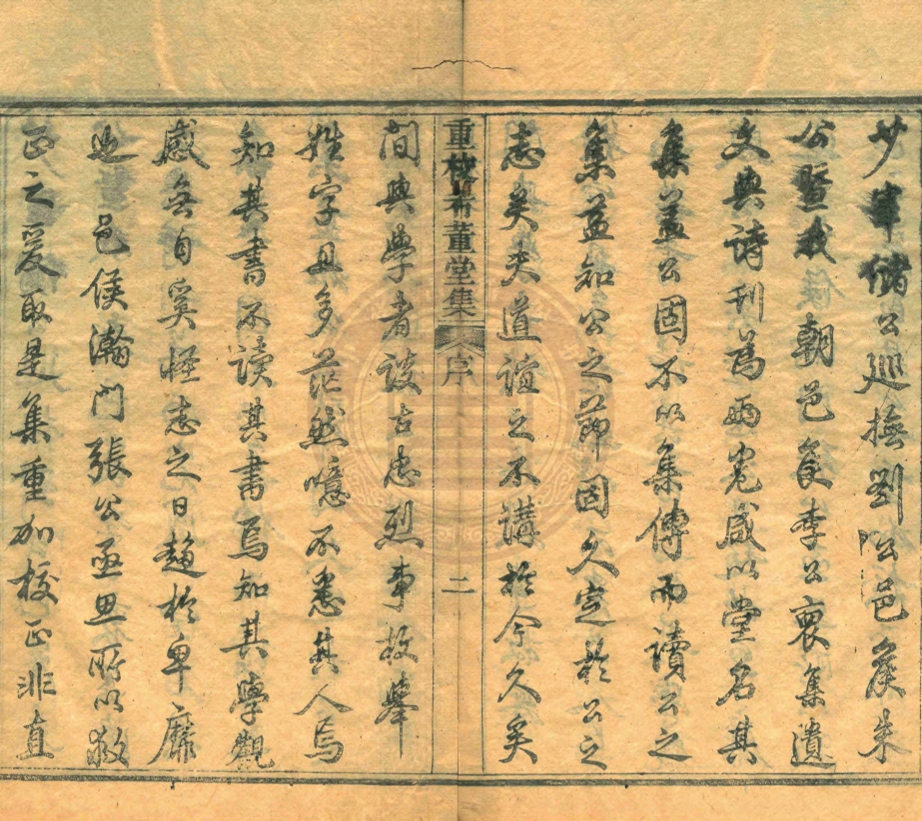 少華儲公巡撫劉公邑侯朱
公暨我侯朝邑李公裒集遺
文與詩刊為兩卷咸以堂名其
集蓋公固不以集傳而讀公之
集益知公之節固久定於公之
志矣夫道誼之不講於今久矣
重校希董堂集 序 二
間與學者談古忠烈事故舉
姓字且多茫然噫不悉其人焉
知其書不讀其書焉知其學觀
感無自奚怪志之日趨於卑靡
也邑侯瀚門張公亟思所以救
正之爰取是集重加校正非直